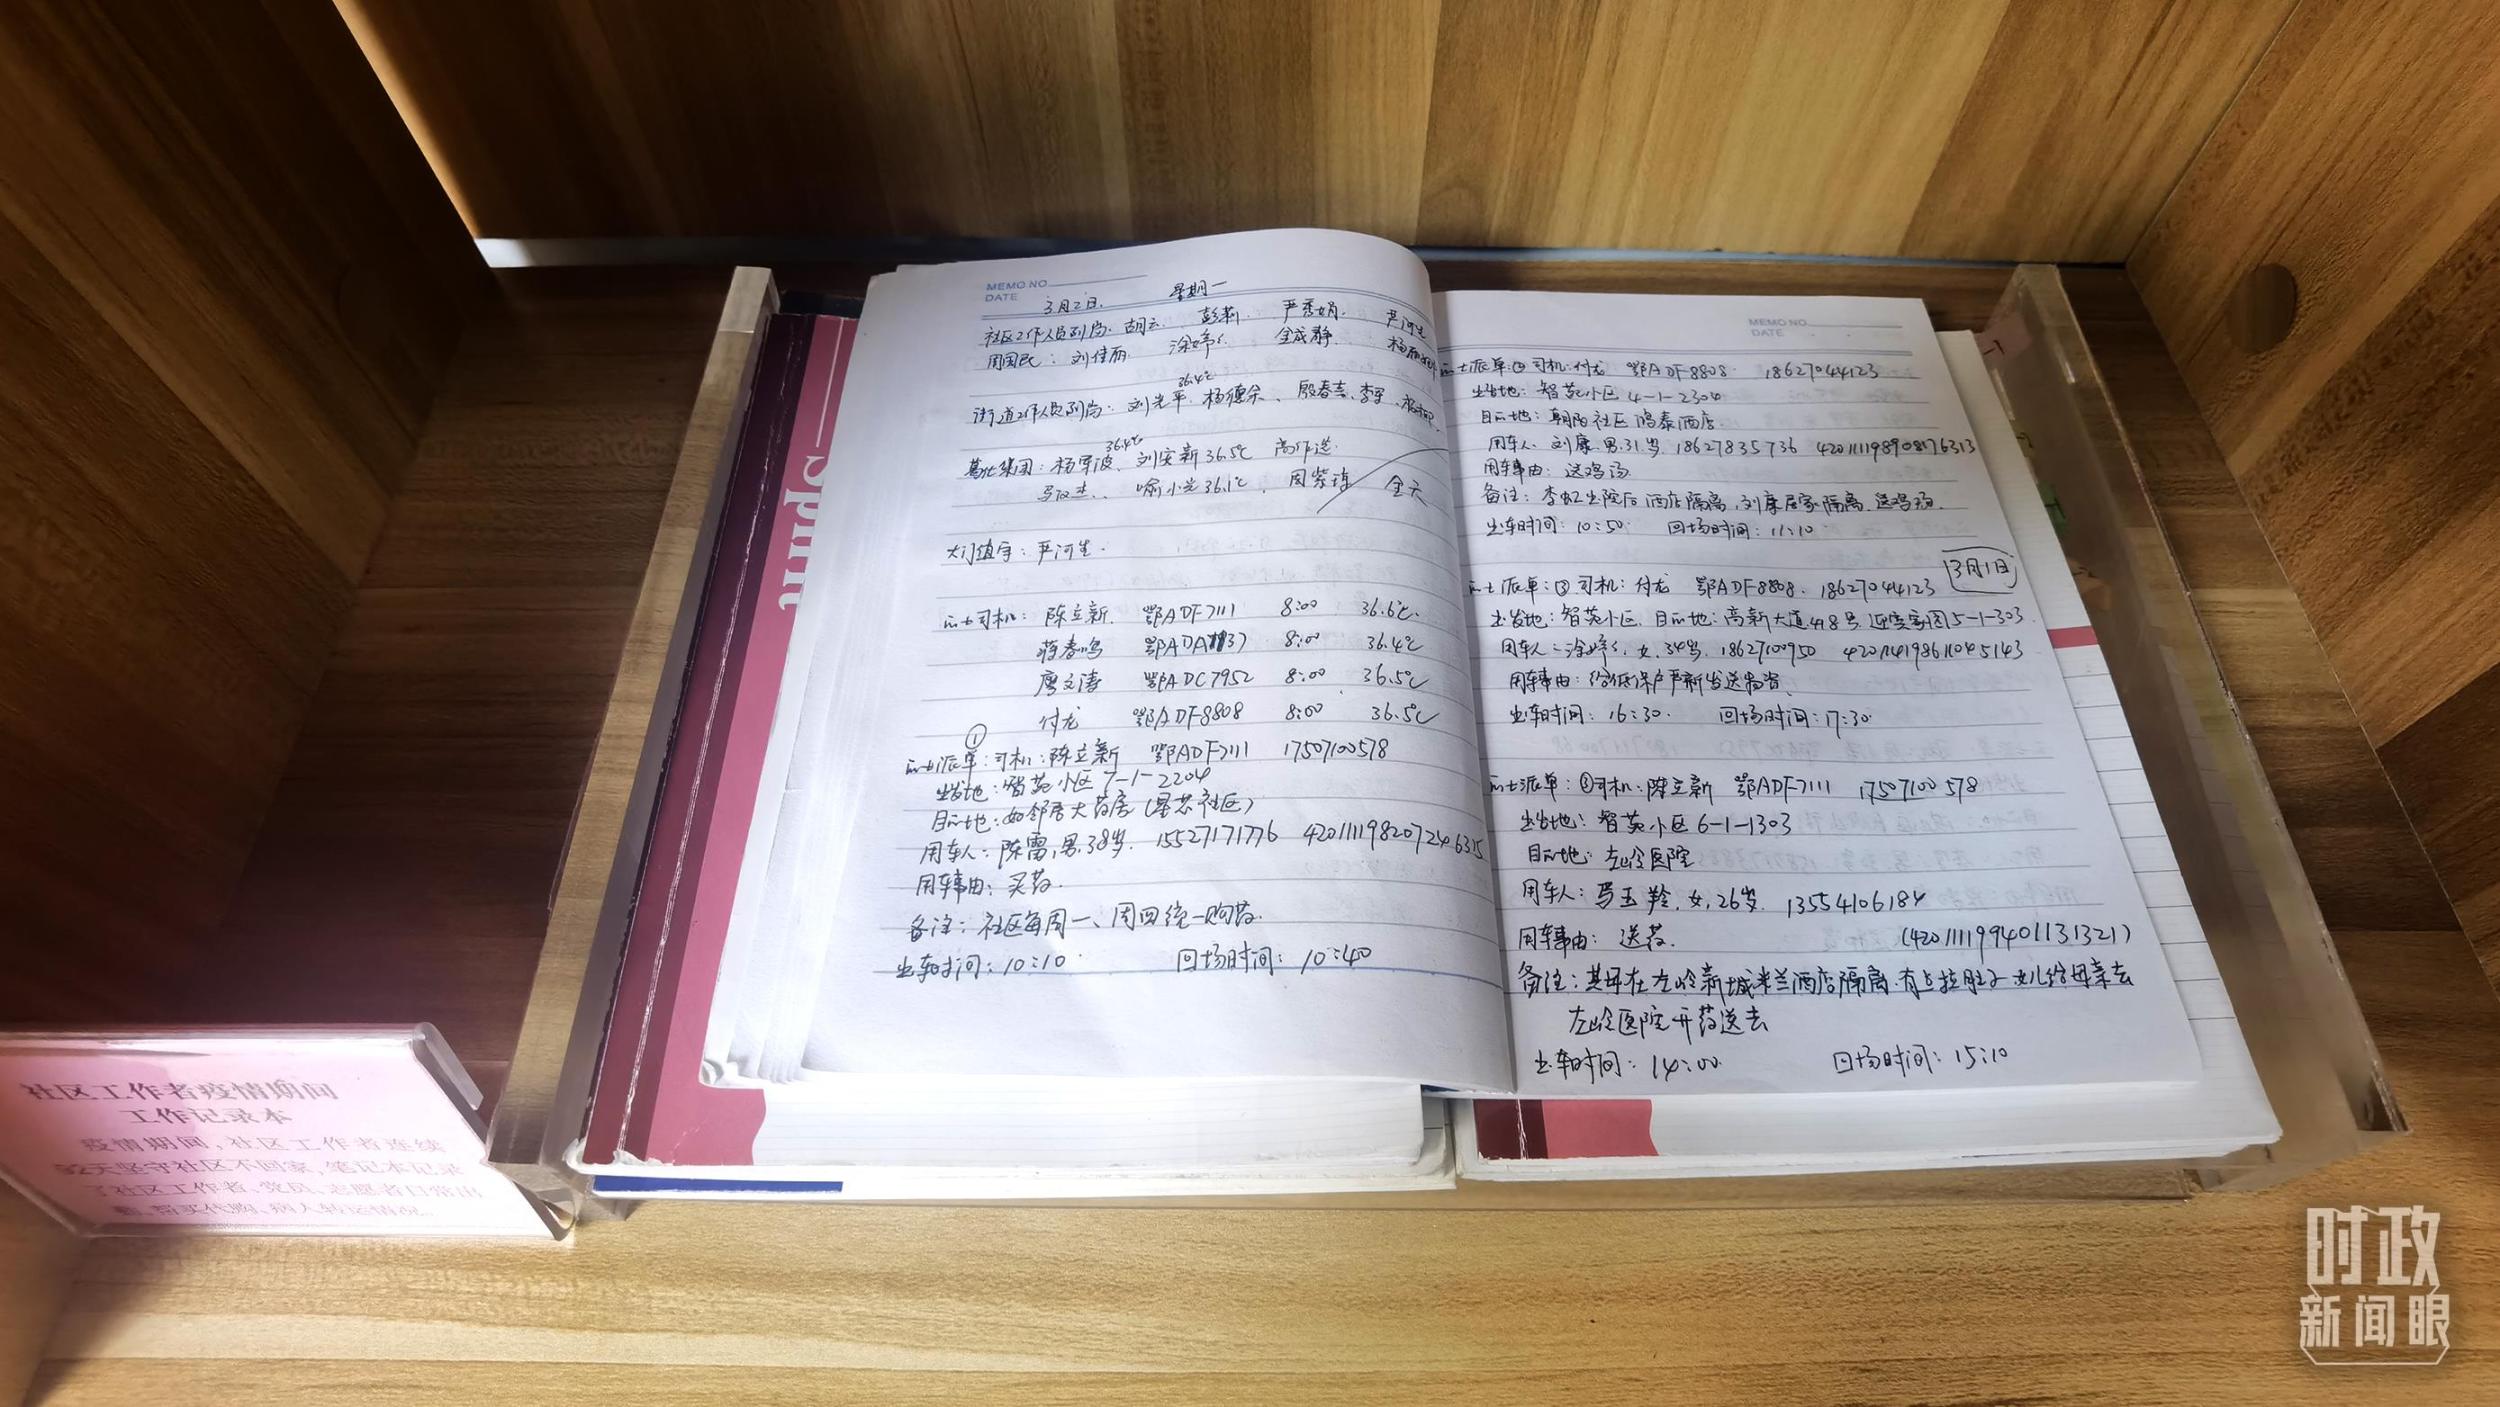 MEMO NO.
DATE
3月2日. 星期一
社区工作人员到岗: 胡云 彭莉 严秀娟 严河生
周国民: 刘佳丽 涂婷 金成静
36.4℃
街道工作人员到岗: 刘光平, 杨德余、殷春喜, 李军
36.4℃
葛化集团: 杨军波、刘安新36.5℃
喻小光36.1℃ 周紫琦 全天
大门值守: 严河生.
的士司机: 陈立新. 鄂ADF7111 8:00 36.6℃.
蒋春鸣 8:00 36.4℃
廖文涛 鄂ADC7952 8:00 36.5℃
付龙 鄂ADF8808 8:00 36.5℃
①
的士派单: 司机: 陈立新 鄂ADF7111 17507100578
出发地: 智苑小区7-1-2204
目的地: 如邻居大药房(星芯社区)
用车人: 陈雷, 男, 38岁. 15527171776 420111198207246315
用车事由: 买药.
备注: 社区每周一、周四统一购药.
出车时间: 10:10 回场时间: 10:40
MEMO NO.
DATE
的士派单:② 司机: 付龙 鄂ADF8808 18627044123
出发地: 智苑小区 4-1-2304
目的地: 朝阳社区鸿泰酒店.
用车人: 刘康. 男. 31岁. 18627835736 420111198908176313
用车事由: 送鸡汤
备注: 李虹出院后酒店隔离, 刘康居家隔离. 送鸡汤.
出车时间: 10:50 回场时间: 11:10
3月1日
的士派单:③ 司机: 付龙 鄂ADF8808. 18627044123
出发地: 智苑小区. 目的地: 高新大道418号 5-1-303
用车人: 涂婷, 女. 34岁. 18627100950 420114198611045143
用车事由: 给低保户严新发送物资.
出车时间: 16:30. 回场时间: 17:30
的士派单: ③司机: 陈立新 鄂ADF7111 17507100578
出发地: 智苑小区6-1-1303
目的地: 左岭医院
用车人: 马玉羚, 女, 26岁. 13554106184
用车事由: 送药. (420111199401131321)
备注: 其母在左岭新城米兰酒店隔离. 有点拉肚子 女儿给母亲去
左岭医院开药送去
出车时间: 14:00 回场时间: 15:10
Spirit
社区工作者疫情期间
工作记录本
疫情期间,社区工作者连续
92天坚守社区不回家,笔记本记录
了社区工作者、党员、志愿者日常出
勤、帮买代购、病人转运情况。
时政
新闻眼